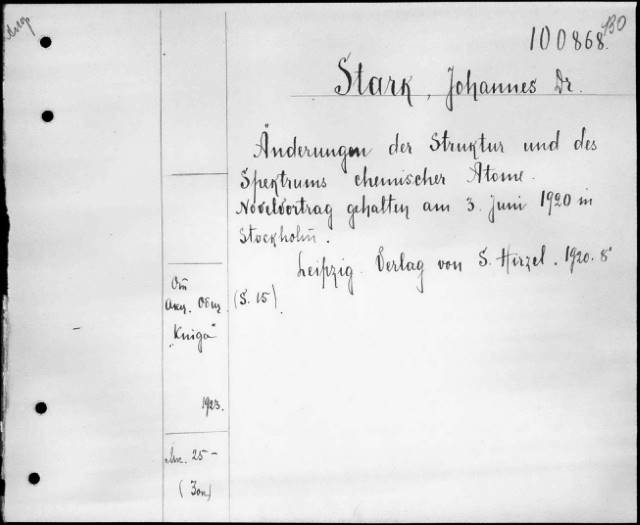 100868.
130
Stark, Johannes Dr.
Änderungen der Struktur und des
Spektrums chemischer Atome.
Novelvortrag gehalten am 3. Juni 1920 in
Stockholm.
Leipzig. Verlag von S. Hirzel. 1920. 8°
(S. 15).
От
Акц. Общ.
"Kniga"
1923.
25 -